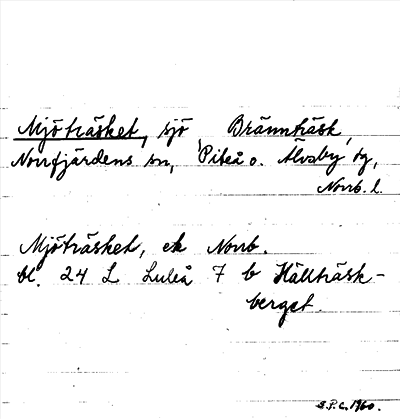 Mjöträsket, sjö Brännträsk,
Norrfjärdens sn, Piteå o. Älvsby tg,
Norrb. l.
Mjöträsket, ek Norrb.
bl. 24 L Luleå 7 b Hällträsk-
berget.
S.P.C. 1960.